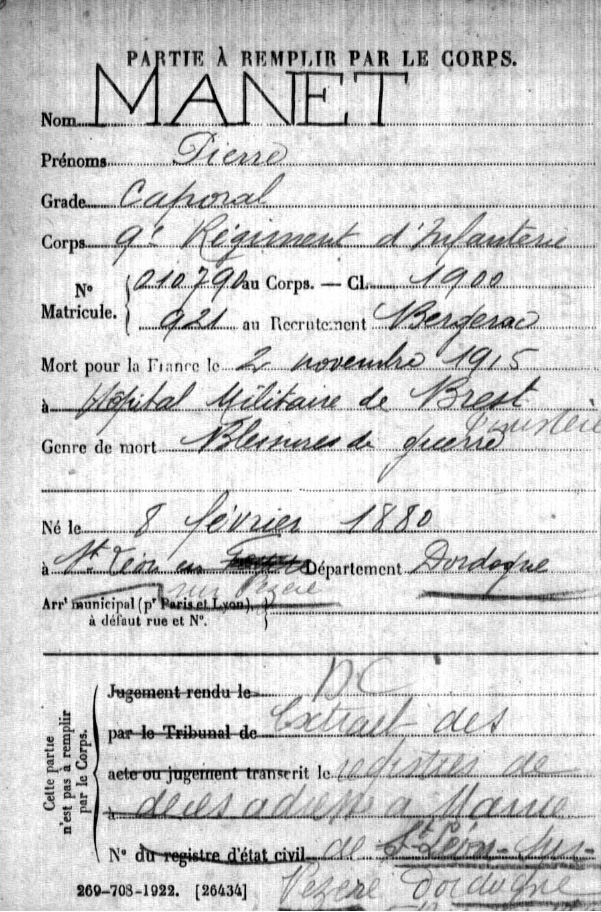 PARTIE À REMPLIR PAR LE CORPS.
Nom MANET
Prénoms Pierre
Grade Caporal
Corps 9e Régiment d'Infanterie
N° Matricule. 010790 au Corps. — Cl. 1900
921 au Recrutement Bergerac
Mort pour la France le 2 novembre 1915
à Hôpital Militaire de Brest
Finistère
Genre de mort Blessures de guerre
Né le 8 février 1880
à St Léon en Département Dordogne
sur Vézère
Arrt municipal (pr Paris et Lyon),
à défaut rue et N°.
Cette partie
n'est pas à remplir
par le Corps.
Jugement rendu le DC
par le Tribunal de Extrait des
acte ou jugement transcrit le registres de
à décès adressé à Mairie
N° du registre d'état civil de St Léon-sur-
269-708-1922. [26434] Vézère Dordogne